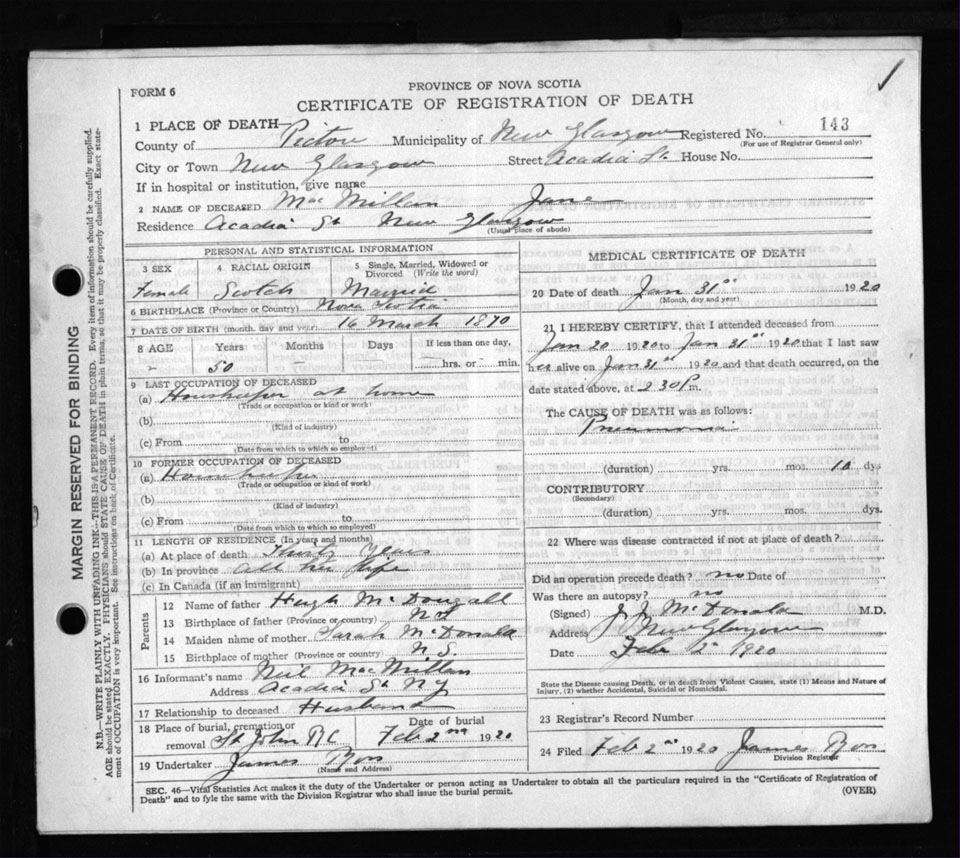 PROVINCE OF NOVA SCOTIA
FORM 6
CERTIFICATE OF REGISTRATION OF DEATH
1 PLACE OF DEATH—
County of Pictou Municipality of New Glasgow Registered No. 143
(For use of Registrar General only)
City or Town New Glasgow Street Acadia St. House No.
If in hospital or institution, give name
2 NAME OF DECEASED MacMillan Jane
Residence Acadia St New Glasgow
(Usual place of abode)
PERSONAL AND STATISTICAL INFORMATION
3 SEX 4 RACIAL ORIGIN 5 Single, Married, Widowed or Divorced (Write the word)
Female Scotch Married
6 BIRTHPLACE (Province or Country) Nova Scotia
7 DATE OF BIRTH (month, day and year) 16 March 1870
8 AGE Years Months Days If less than one day,
- 50 - hrs. or min.
9 LAST OCCUPATION OF DECEASED
(a) Housekeeper at home
(Trade or occupation or kind of work)
(b)
(Kind of industry)
(c) From to
(Date from which to which so employed)
10 FORMER OCCUPATION OF DECEASED
(a) Housekeeper
(Trade or occupation or kind of work)
(b)
(Kind of industry)
(c) From to
(Date from which to which so employed)
11 LENGTH OF RESIDENCE (In years and months)
(a) At place of death Thirty Years
(b) In province all her life
(c) In Canada (if an immigrant)
Parents
12 Name of father Hugh McDougall
13 Birthplace of father (Province or country) NS
14 Maiden name of mother Sarah McDonald
15 Birthplace of mother (Province or country) N.S.
16 Informant's name Neil MacMillan
Address Acadia St NG
17 Relationship to deceased Husband
18 Place of burial, cremation or removal St John RC Date of burial Feb 2nd 1920
19 Undertaker James Ross
(Name and Address)
MEDICAL CERTIFICATE OF DEATH
20 Date of death Jan 31st 1920
(Month, day and year)
21 I HEREBY CERTIFY, that I attended deceased from
Jan 20 1920 to Jan 31st 1920 that I last saw
her alive on Jan 31st 1920 and that death occurred, on
date stated above, at 2 30 P m.
The CAUSE OF DEATH was as follows:
Pneumonia
(duration) yrs. mos. 10 dys
CONTRIBUTORY
(Secondary)
(duration) yrs. mos. dys.
22 Where was disease contracted if not at place of death?
Did an operation precede death? no Date of
Was there an autopsy? no
(Signed) J J McDonald M.D.
Address New Glasgow
Date Feb 2 1920
State the Disease causing Death, or in death from Violent Causes, state (1) Means and Nature of
Injury, (2) whether Accidental, Suicidal or Homicidal.
23 Registrar's Record Number
24 Filed Feb 2nd 1920 James Ross
Division Registrar
SEC. 46—Vital Statistics Act makes it the duty of the Undertaker or person acting as Undertaker to obtain all the particulars required in the "Certificate of Registration of
Death" and to fyle the same with the Division Registrar who shall issue the burial permit. (OVER)
MARGIN RESERVED FOR BINDING
N.B.—WRITE PLAINLY WITH UNFADING INK—THIS IS A PERMANENT RECORD. Every item of information should be carefully supplied.
AGE should be stated EXACTLY. PHYSICIANS should STATE CAUSE OF DEATH in plain terms, so that it may be properly classified. Exact state-
ment of OCCUPATION is very important. See instructions on back of Certificate.